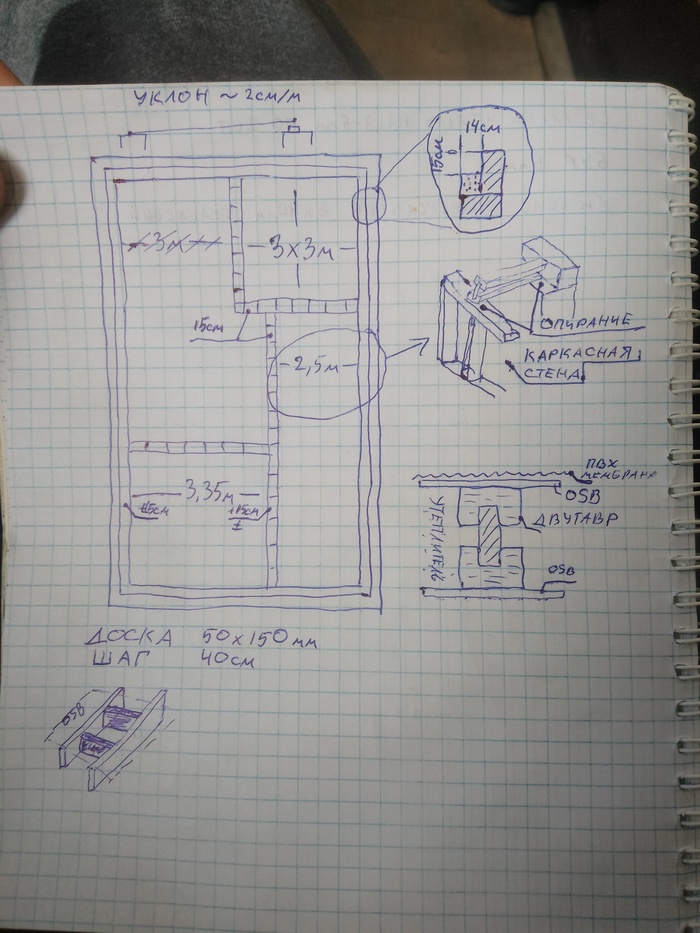 УКЛОН ~ 2см/м
14см
15см
3м
3х3м
15см
2,5м
ОПИРАНИЕ
КАРКАСНАЯ
СТЕНА
3,35м
ПВХ
МЕМБРАНА
OSB
ДВУТАВР
УТЕПЛИТЕЛЬ
OSB
ДОСКА 50х150мм
ШАГ 40см
OSB